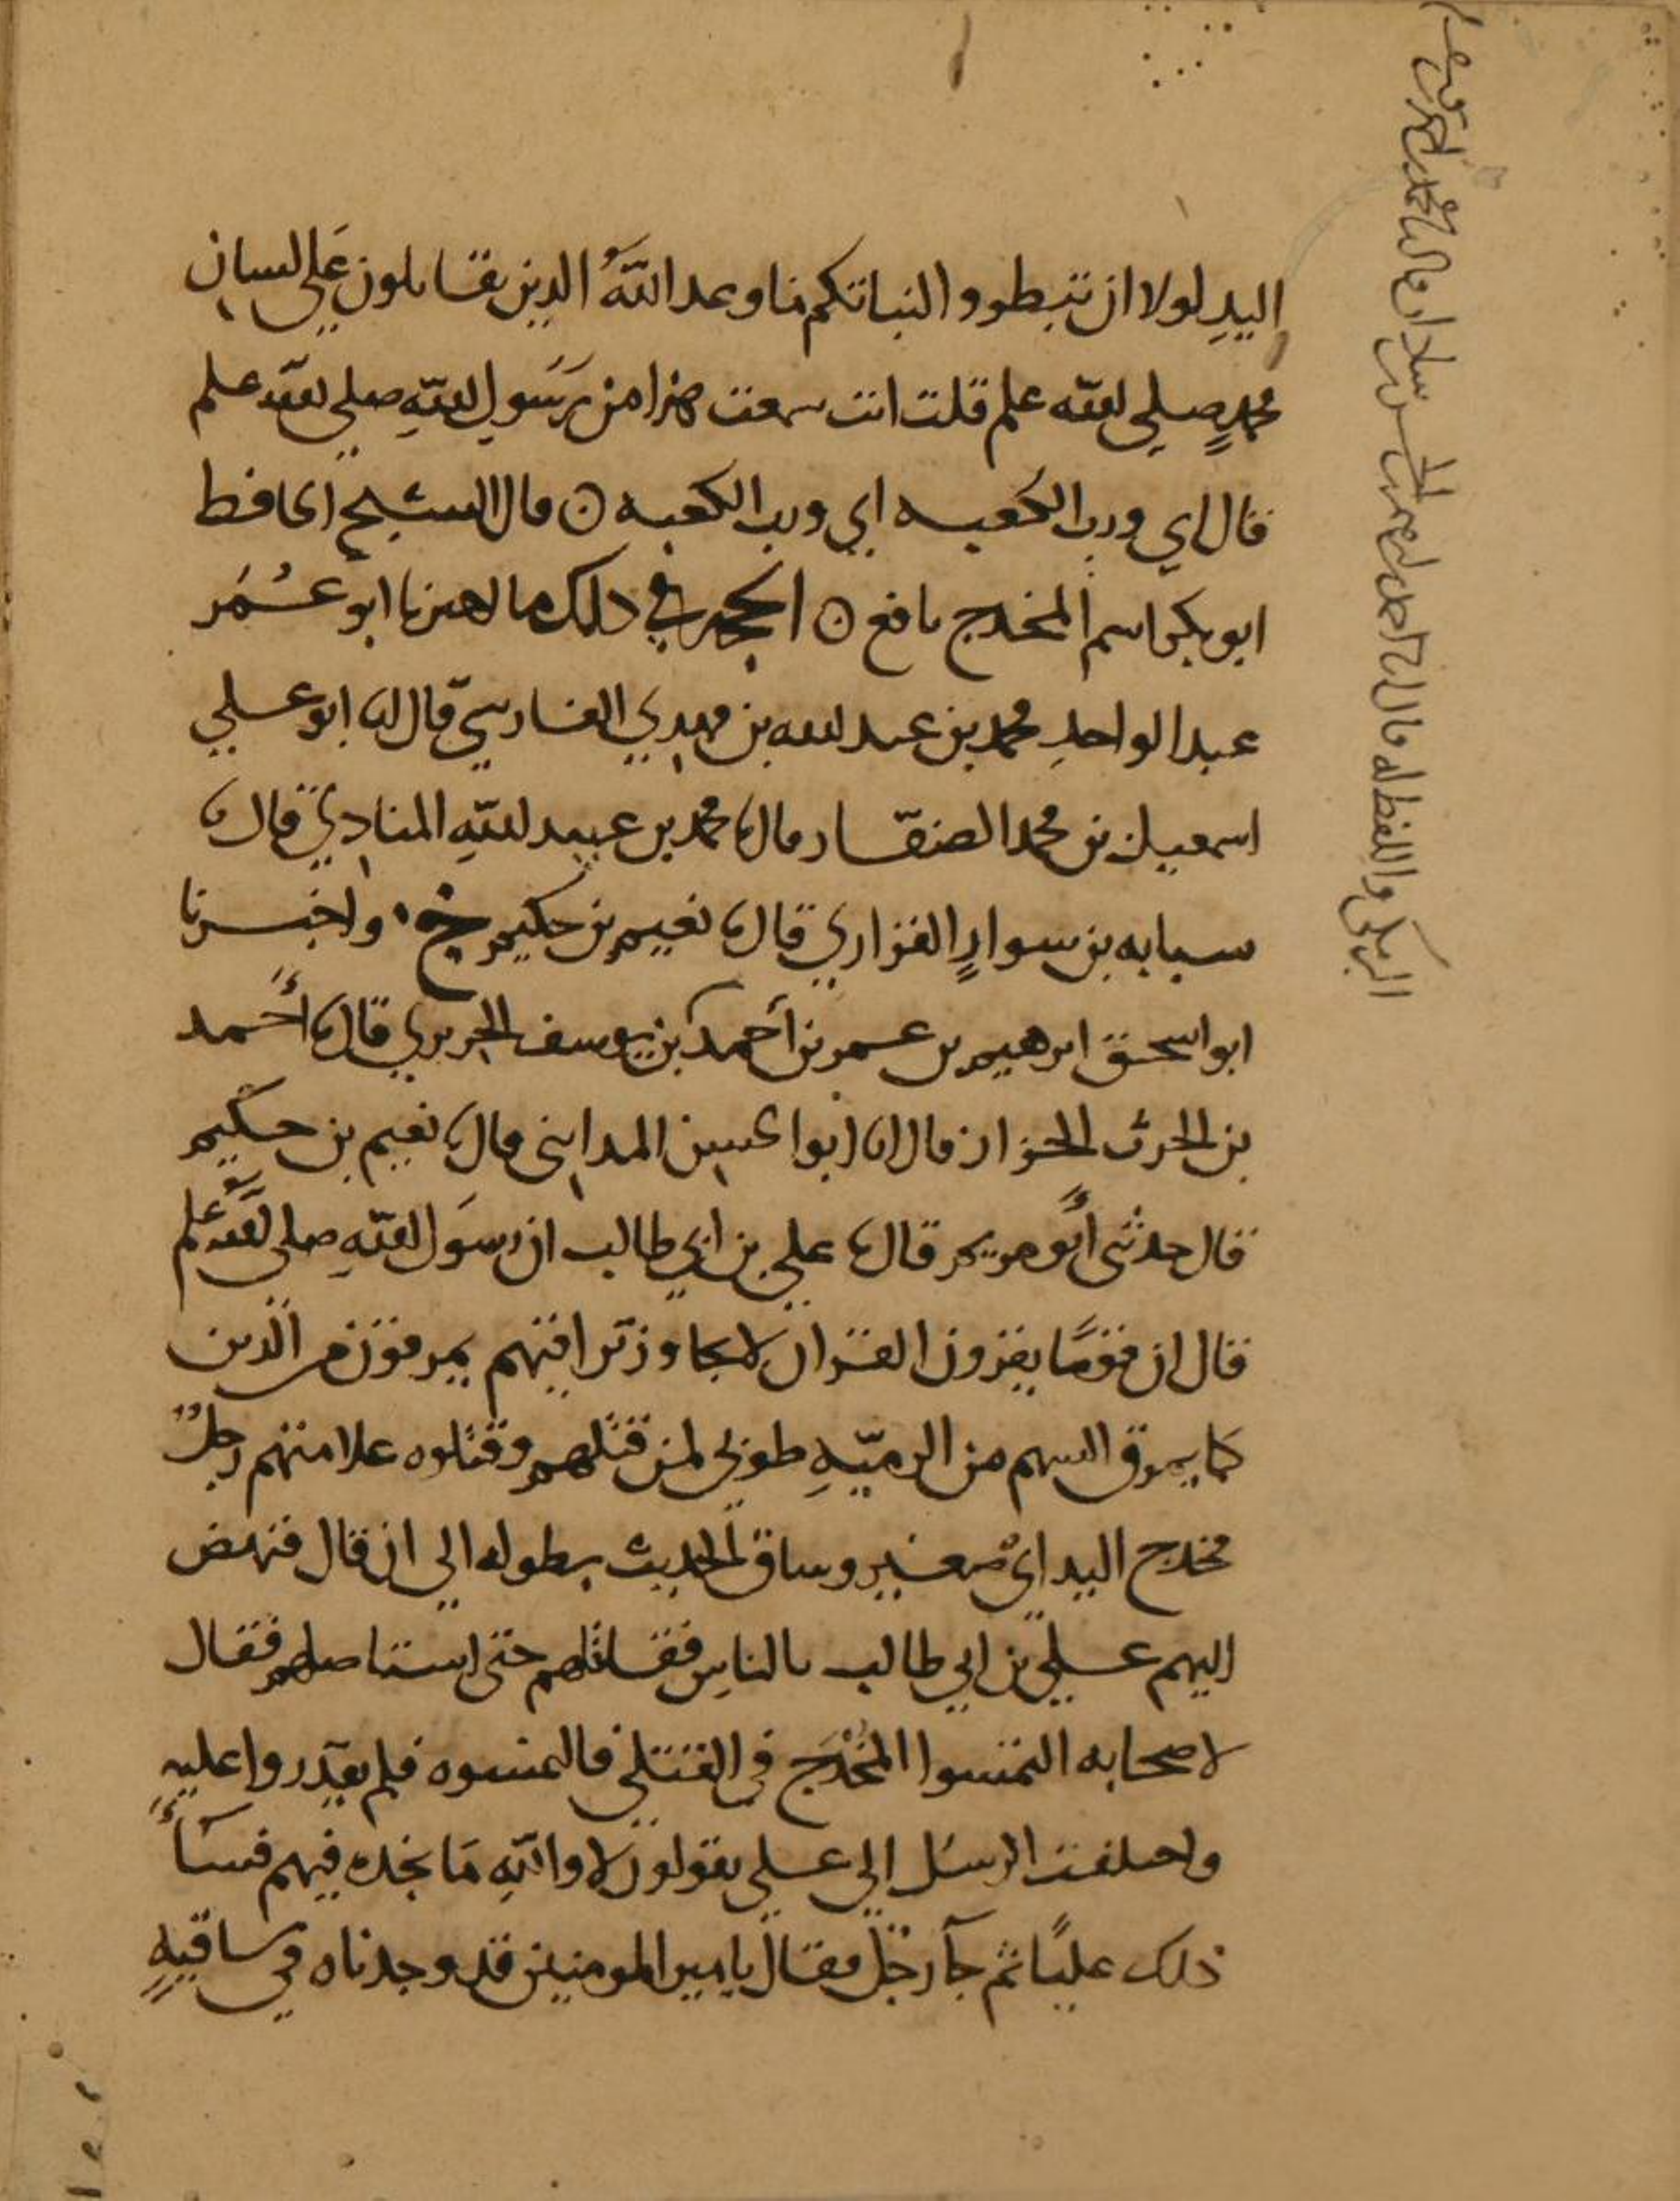 اليدِ لولا ان تبطروا لنباتكم بما وعد اللهُ الذين يقاتلون عَلى لسان
محمدٍ صلى الله علم قلت انت سمعت هذا من رَسَولِ اللهِ صلى الله علم
قال اي ورب الكعبه اي ورب الكعبه ن قال الشيخ الحافظ
ابو بكر اسم المخدج نافع ن الحجه في ذلك ما اخبرنا ابو عُمَر
عبد الواحدِ محمد بن عبد الله بن مهدي الفارسيّ قال انا ابو علي
اسمعيل بن محمد الصفّار قال نا محمد بن عبيد اللهِ المنادي قال نا
سبابه بن سوارٍ الفزاري قال نا نعيم بن حكيم ح واخبرنا
ابو اسحق ابرهيم بن عمر بن أحمد بن يوسف الحريري قال نا أَحمد
بن الحرث الخزاز قال انا ابو الحسين المدايني قال نا نعيم بن حكيم
قال حدثني أبو مريم قال نا علي بن ابي طالب ان رسَول اللهِ صلى اللهُ علم
قال ان قومًا يقرون القران لا يجاوز تراقيهم يمرقون من الدين
كما يمرق السهم من الرميّهِ طوبى لمن قتلهم وقتلوه علامتهم رجلٌ
مخدج اليد اي صغير وساق الحديث بطوله الى ان قال فنهض
اليهم علي بن ابي طالب بالناسِ فقاتلهم حتى استاصلهم فقال
لاصحابه التمسوا المُخْدَج في القتلى فالتمسوه فلم يقدروا عليهِ
واختلفت الرسُل الى علي يقولون لا واللهِ مَا نجده فيهم فسَاءَ
ذلك عليًا ثم جآ رجل فقال يا امير المومنين قد وجدناه في ساقيهٍ
البرمكى واللفظ له قال انا